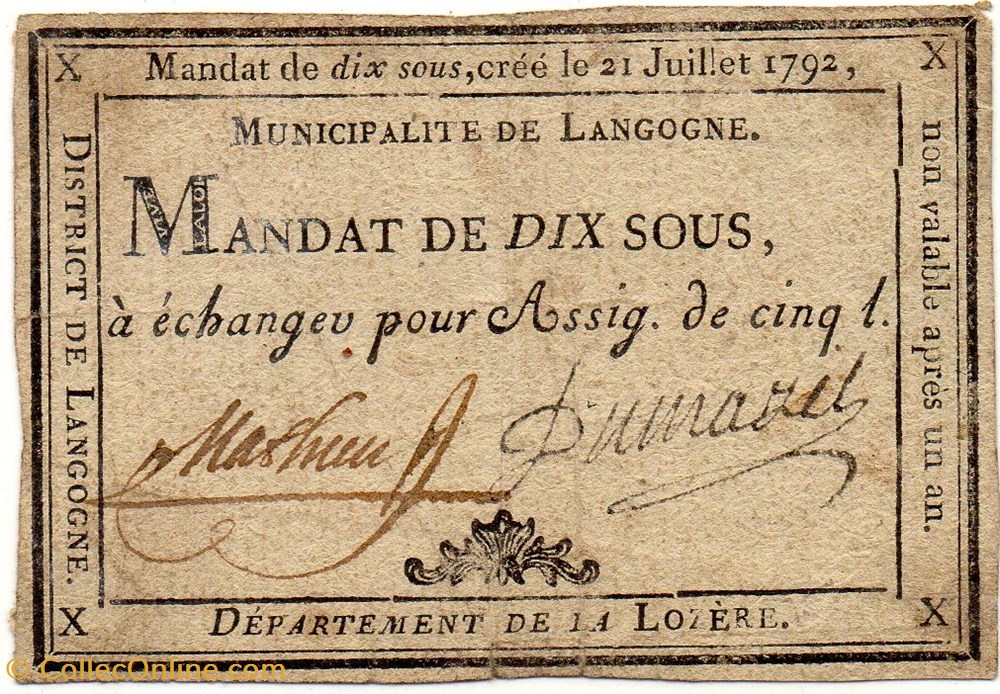 X Mandat de dix sous, créé le 21 Juillet 1792, X
MUNICIPALITE DE LANGOGNE.
MANDAT DE DIX SOUS,
à échangev pour Assig. de cinq l.
Dumazel
DISTRICT DE LANGOGNE.
non valable après un an.
X DÉPARTEMENT DE LA LOZÈRE. X
© CollecOnline.com